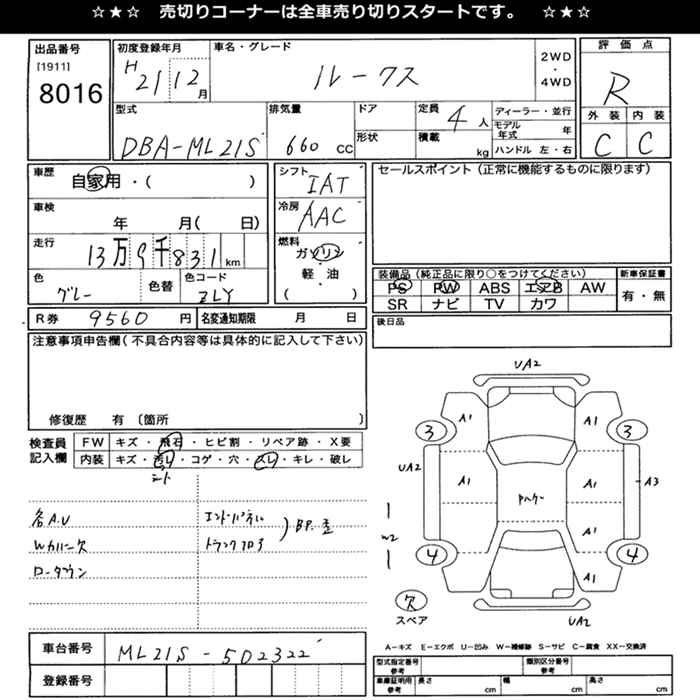 ☆★☆ 売切りコーナーは全車売り切りスタートです。 ☆★☆
出品番号
[1911]
8016
初度登録年月
H 21 12 月
車名・グレード
ルークス
2WD
・
4WD
評価点
R
外装 内装
C C
型式
DBA-ML21S
排気量
660 CC
ドア
形状
定員
4 人
積載
kg
ディーラー・並行
モデル年式 年
ハンドル 左・右
車歴
自家用・( )
車検
年 月( 日)
走行
13万9千831 km
色
グレー
色替
色コード
ZLY
シフト
IAT
冷房
AAC
燃料
ガソリン
・
軽油
( )
セールスポイント(正常に機能するものに限ります)
装備品(純正品に限り○をつけてください)
PS PW ABS エアB AW
SR ナビ TV カワ
新車保証書
有・無
R券 9560 円
名変通知期限 月 日
後日品
注意事項申告欄(不具合内容等は具体的に記入して下さい)
修復歴 有 〔箇所 〕
検査員記入欄
FW キズ・飛石・ヒビ割・リペア跡・X要
内装 キズ・汚レ・コゲ・穴・スレ・キレ・破レ
シート
各A.U
Wカバー欠
ローダウン
エンドパネル
トランクフロア
BP.歪
UA2
A1 A1
3 3
UA2
A1 A1
A3
W2
A1
4 4
A1
欠
スペア
UA2
A−キズ E−エクボ U−凹み W−補修跡 S−サビ C−腐食 XX−交換済
車台番号
ML21S - 502322
登録番号
型式指定番号
参考
類別区分番号
参考
車庫証明用
参考
長さ cm
幅 cm
高さ cm